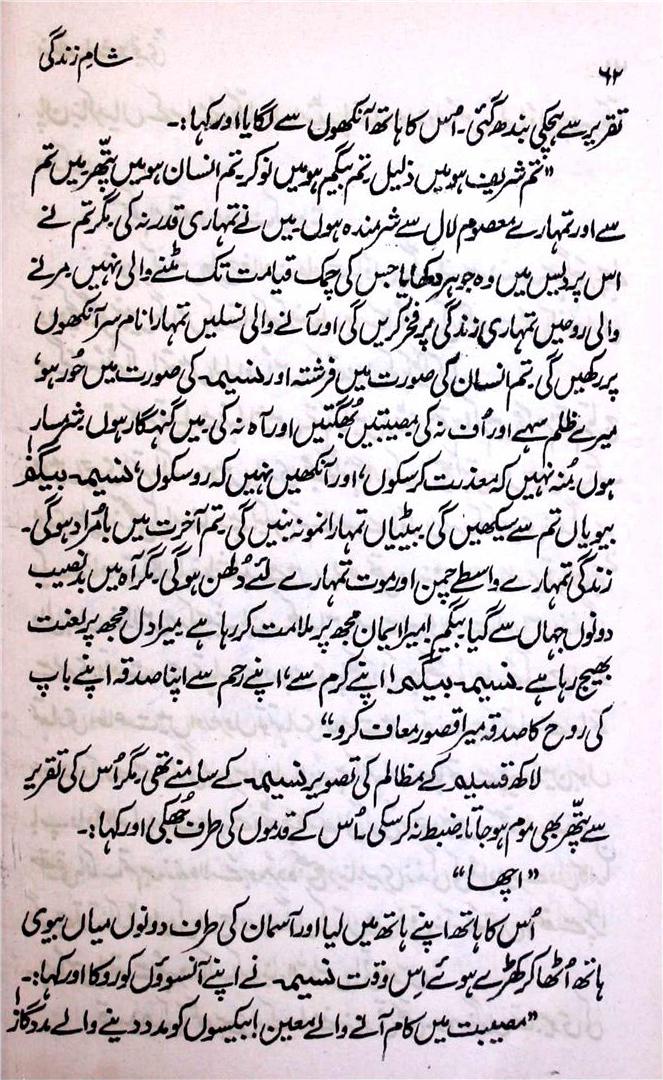 شامِ زندگی
۶۲
تقریر سے ہچکی بندھ گئی۔ اُس کا ہاتھ آنکھوں سے لگایا اور کہا:۔
”تم شریف ہو میں ذلیل۔ تم بیگم ہو میں نوکر۔ تم انسان ہو میں پتّھر۔ میں تم
سے اور تمہارے معصوم لال سے شرمندہ ہوں۔ میں نے تمہاری قدر نہ کی۔ مگر تم نے
اس پردیس میں وہ جوہر دکھایا جس کی چمک قیامت تک مٹنے والی نہیں۔ مرنے
والی روحیں تمہاری زندگی پر فخر کریں گی اور آنے والی نسلیں تمہارا نام سر آنکھوں
پر رکھیں گی۔ تم انسان کی صورت میں فرشتہ اور نسیمہ کی صورت میں حُور ہو،
میرے ظلم سہے اور اُف نہ کی۔ مصیبتیں بُھگتیں اور آہ نہ کی۔ میں گنہگار ہوں۔ شرمسار
ہوں۔ مُنہ نہیں کہ معذرت کر سکوں، اور آنکھیں نہیں کہ رو سکوں، نسیمہ بیگم!
بیویاں تم سے سیکھیں گی۔ بیٹیاں تمہارا نمونہ بنیں گی۔ تم آخرت میں بامُراد ہو گی۔
زندگی تمہارے واسطے چمن اور موت تمہارے لئے دُلھن ہو گی۔ مگر آہ میں بدنصیب
دونوں جہاں سے گیا۔ بیگم! میرا ایمان مجھ پر ملامت کر رہا ہے۔ میرا دل مجھ پر لعنت
بھیج رہا ہے۔ نسیمہ بیگم! اپنے کرم سے، اپنے رحم سے اپنا صدقہ اپنے باپ
کی روح کا صدقہ میرا قصور معاف کرو۔“
لاکھ قسیم کے مظالم کی تصویر نسیمہ کے سامنے تھی۔ مگر اُس کی تقریر
سے پتّھر بھی موم ہو جاتا۔ ضبط نہ کر سکی۔ اُس کے قدموں کی طرف جُھکی اور کہا:۔
”اچھا“
اُس کا ہاتھ اپنے ہاتھ میں لیا اور آسمان کی طرف دونوں میاں بیوی
ہاتھ اُٹھا کر کھڑے ہوئے اِس وقت نسیمہ نے اپنے آنسوؤں کو روکا اور کہا:۔
”مصیبت میں کام آنے والے معین! بیکسوں کو مدد دینے والے مددگار!